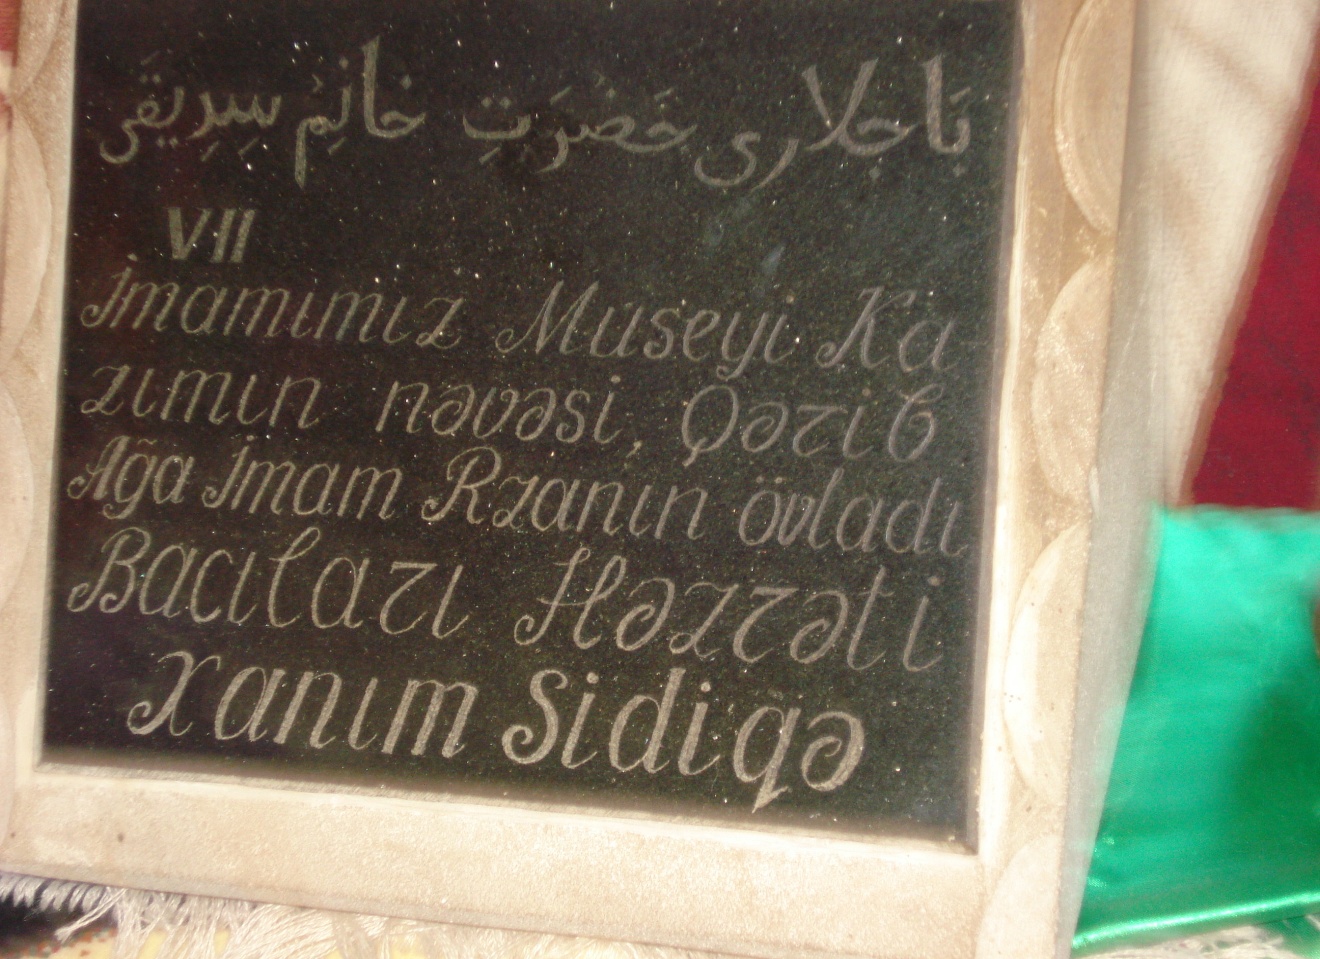 بَاجلاری حَضرَتِ خانِمْ سِدِیقَی
VII
İmamımız Museyı Ka-
zımın nəvəsi, Qərib
Ağa İmam Rzanın övladı
Bacıları Həzrəti
Xanım Sidiqə